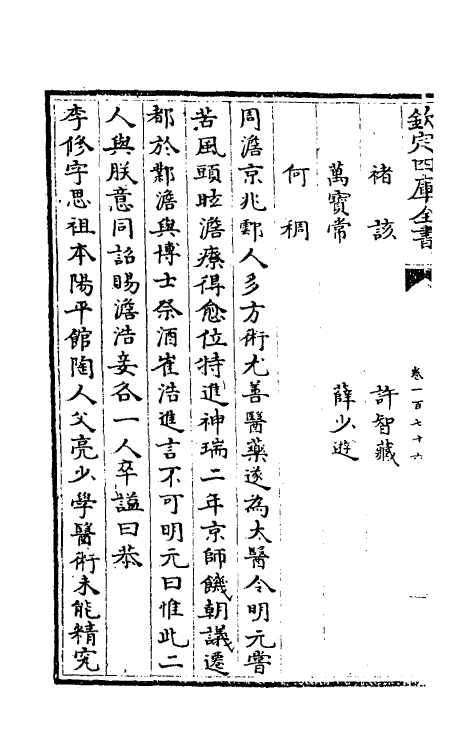 欽定四庫全書
卷一百七十六
一
褚該
許智藏
萬寶常
薛少遊
何稠
周澹京兆鄠人多方術尤善醫藥遂為太醫令明元嘗
苦風頭眩澹療得愈位特進神瑞二年京師饑朝議遷
都於鄴澹與博士祭酒崔浩進言不可明元曰惟此二
人與朕意同詔賜澹浩妾各一人卒諡曰恭
李修字思祖本陽平館陶人父亮少學醫術未能精究